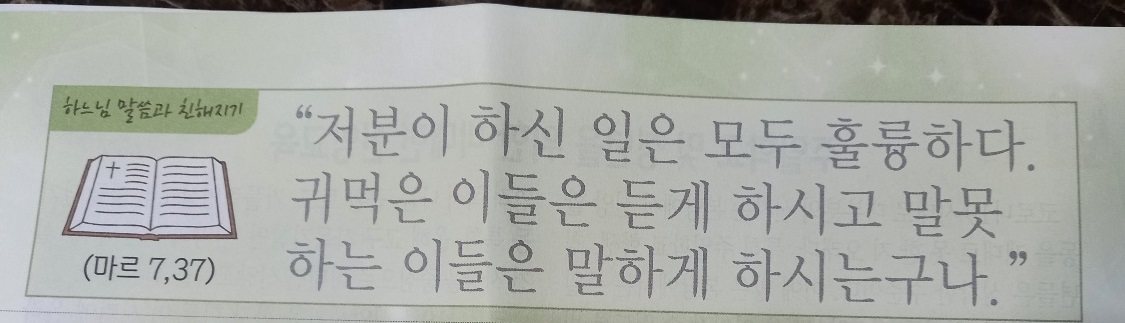 하느님 말씀과 친해지기
(마르 7,37)
“저분이 하신 일은 모두 훌륭하다.
귀먹은 이들은 듣게 하시고 말못
하는 이들은 말하게 하시는구나.”